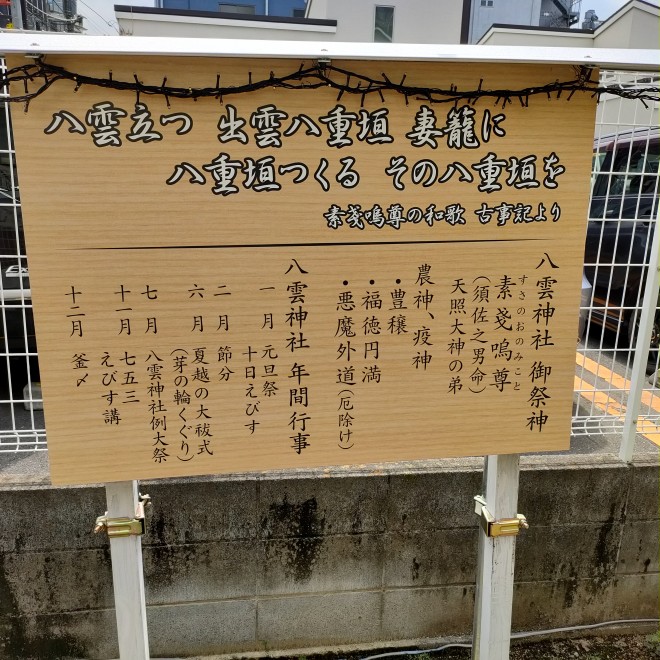 八雲立つ 出雲八重垣 妻籠に
八重垣つくる その八重垣を
素戔嗚尊の和歌 古事記より
八雲神社 御祭神
すさのおのみこと
素戔嗚尊
(須佐之男命)
天照大神の弟
農神、疫神
・豊穣
・福徳円満
・悪魔外道(厄除け)
八雲神社 年間行事
一月 元旦祭
十日えびす
二月 節分
六月 夏越の大祓式
(芽の輪くぐり)
七月 八雲神社例大祭
十一月 七五三
えびす講
十二月 釜〆